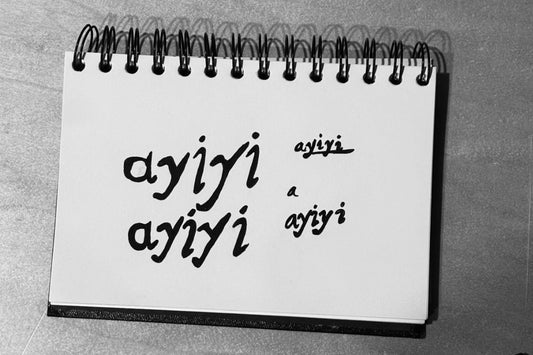 ayiyi
ayiyi
ayiyi
a
ayiyi